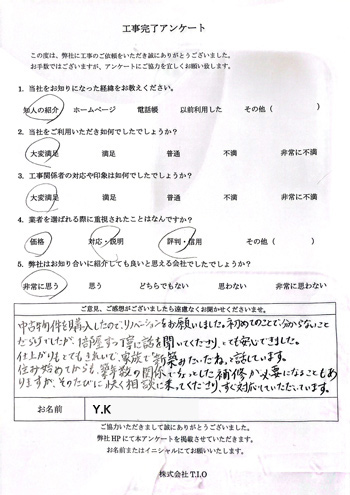 工事完了アンケート
この度は、弊社に工事のご依頼をいただき誠にありがとうございました。
お手数ではございますが、アンケートにご協力を宜しくお願い致します。
1. 当社をお知りになった経緯をお教えください。
知人の紹介 ホームページ 電話帳 以前利用した その他（ ）
2. 当社をご利用いただき如何でしたでしょうか？
大変満足 満足 普通 不満 非常に不満
3. 工事関係者の対応や印象は如何でしたでしょうか？
大変満足 満足 普通 不満 非常に不満
4. 業者を選ばれる際に重視されたことはなんですか？
価格 対応・説明 評判・信用 その他（ ）
5. 弊社はお知り合いに紹介しても良いと思える会社でしたでしょうか？
非常に思う 思う どちらでもない 思わない 非常に思わない
ご意見、ご感想がございましたら遠慮なくお聞かせくださいませ。
中古物件を購入したので、リノベーションをお願いしました。初めてのことで、分からないこと
だらけでしたが、一つ丁寧に話を聞いてくださり、とても安心できました。
仕上がりもとてもきれいで、家族で新築みたいだね。と話しています。
住み始めてからも、築年数の関係でちょっとした補修が必要になることもあ
りますが、そのたびに快く相談に乗ってくださり、すぐ対応していただいています。
お名前 Y.K
ご協力いただきまして誠にありがとうございました。
弊社 HP にて本アンケートを掲載させていただきます。
お名前またはイニシャルにてお願いいたします。
株式会社 T.I.O